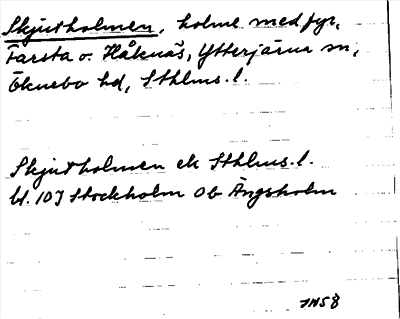 Skjutholmen, holme med fyr,
Farsta o. Håknäs, Ytterjärna sn,
Öknebo hd, Sthlms. l.
Skjutholmen ek Sthlms. l.
bl. 107 Stockholm Ob Ängsholm
JN58